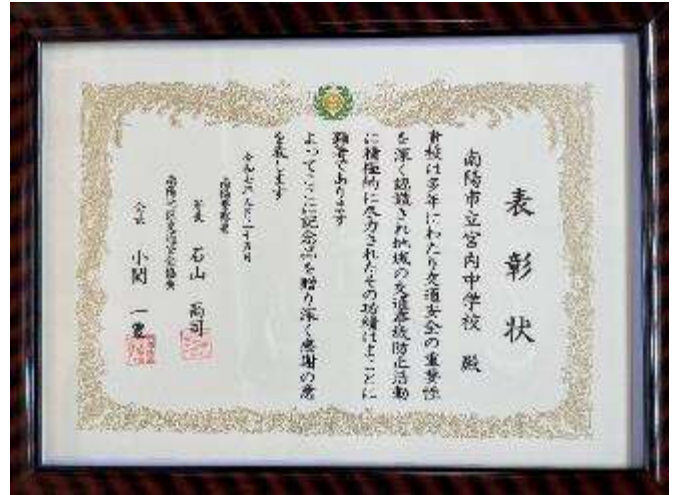 表彰状
南陽市立宮内中学校 殿
貴校は多年にわたり交通安全の重要性
を深く認識され地域の交通事故防止活動
に積極的に尽力されたその功績はまことに
顕著であります
よってここに記念品を贈り深く感謝の意
を表します
令和七年九月二十
南陽警察署
署長 石山 高司
南陽地区交通安全協会
会長 小関 一